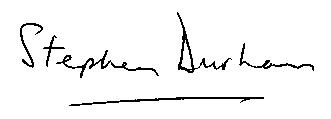 Stephen Durham